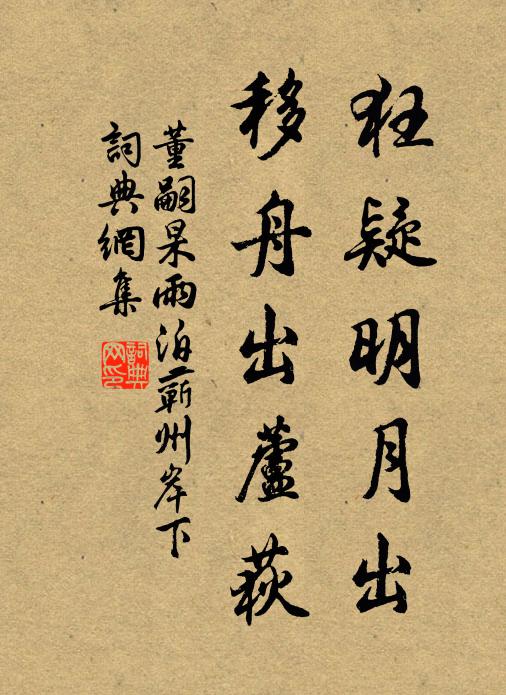 狂疑明月出
移舟出蘆荻
董嗣杲雨泊蘄州岸下
詞典網集
詞典网印